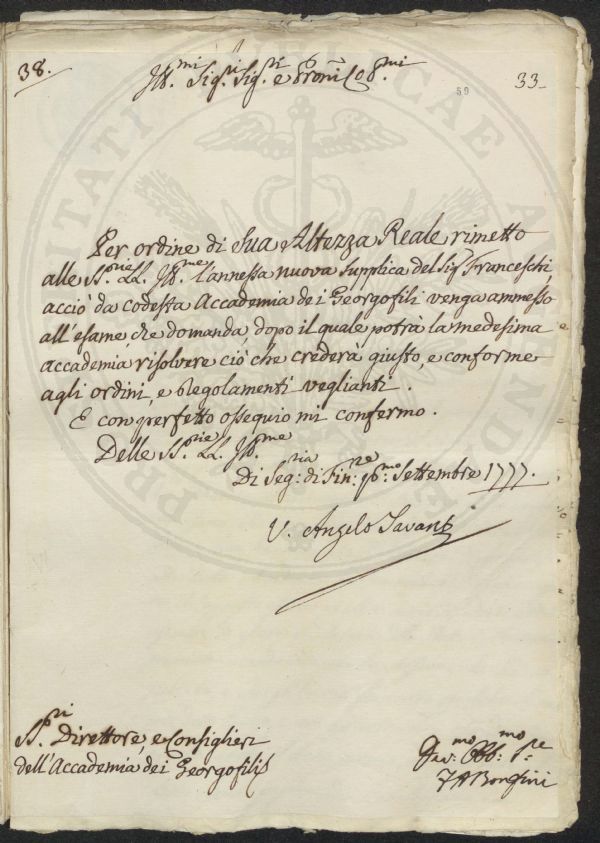 38.
Ill.mi Sig.ri Sig.ri e Proñi Col.mi
59
33
Per ordine di Sua Altezza Reale rimetto
alle SS.rie LL. Ill.me l'annessa nuova supplica del Sig.r Franceschi,
acciò da codesta Accademia dei Georgofili venga ammesso
all'esame che domanda, dopo il quale potrà la medesima
accademia risolvere ciò che crederà giusto, e conforme
agli ordini, e Regolamenti veglianti.
E con perfetto ossequio mi confermo.
Delle SS.rie LL. Ill.me
Di Seg:ria di Fin:ze p:mo Settembre 1777.
V. Angelo Tavanti
SS.ri Direttore, e Consiglieri
dell'Accademia dei Georgofili
Dev:mo Obb:mo Se:
PROSPERITATI PUBLICAE AUGENDAE